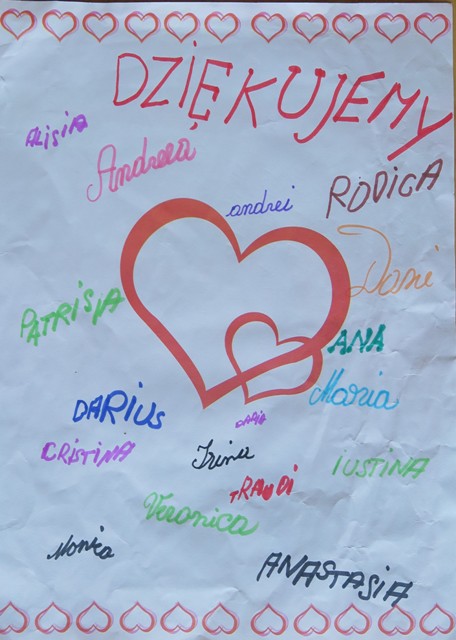 DZIĘKUJEMY
ALISIA
Andreea
andrei
RODICA
Dani
PATRISIA
ANA
Maria
DARIUS
DARIA
CRISTINA
Irina
IUSTINA
TRANDI
Veronica
Monica
ANASTASIA